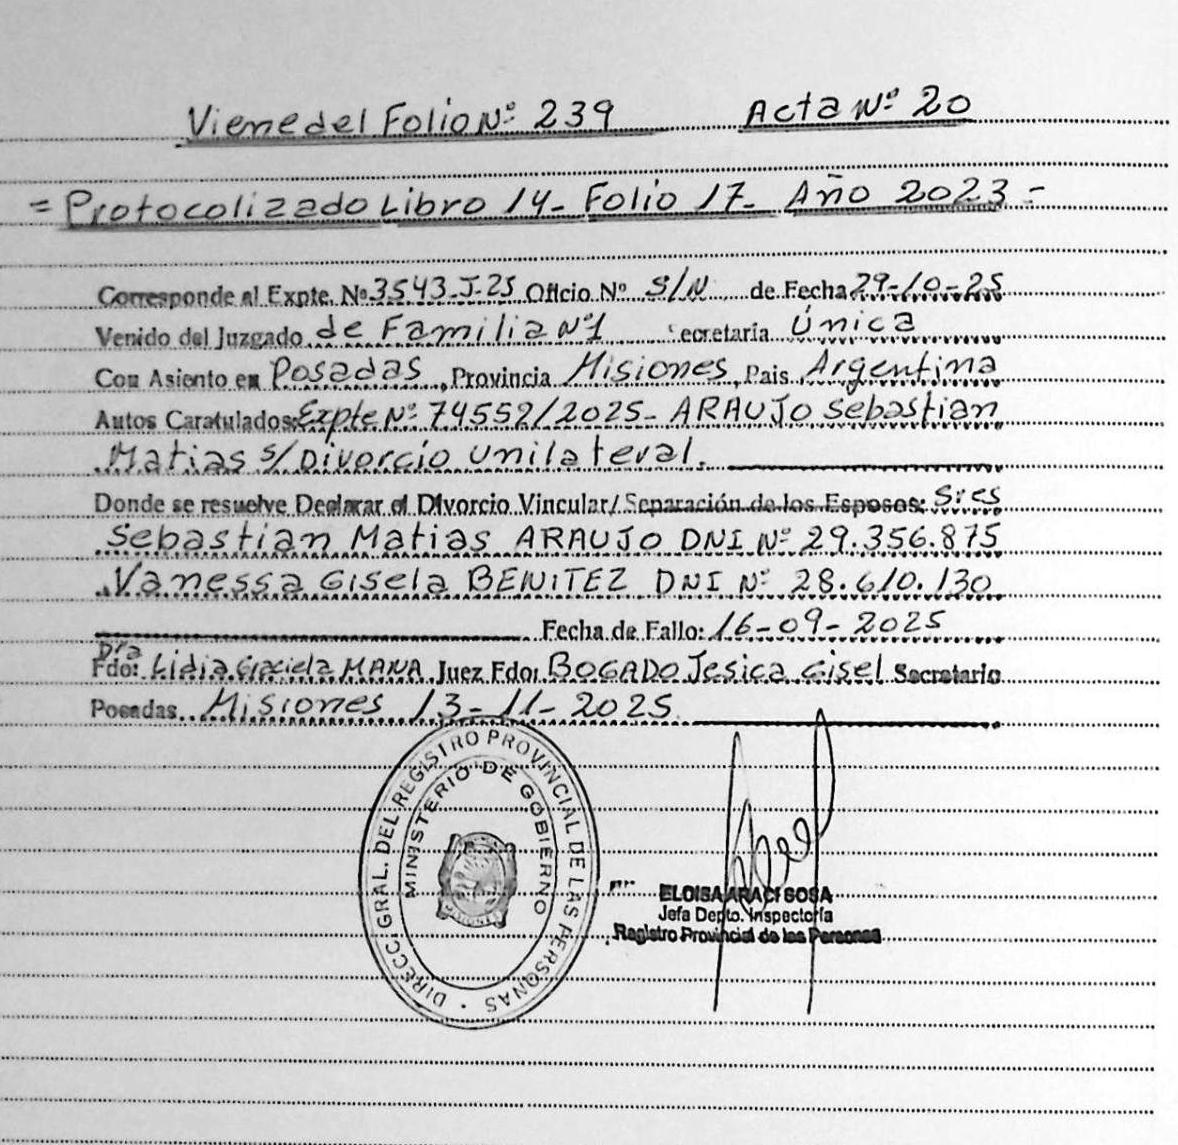 Viene del Folio Nº 239 Acta Nº 20
= Protocolizado Libro 14- Folio 17- Año 2023 =
Corresponde al Expte. Nº 3543-J-25 Oficio Nº S/N de Fecha 29-10-25
Venido del Juzgado de Familia Nº1 Secretaría Única
Con Asiento en Posadas, Provincia Misiones, Pais Argentina
Autos Caratulados: Expte Nº 74552/2025- ARAUJO Sebastian
Matias s/ Divorcio Unilateral.
Donde se resuelve Declarar el Divorcio Vincular/ Separación de los Esposos: Sres
Sebastian Matias ARAUJO DNI Nº 29.356.875
Vanessa Gisela BENITEZ DNI Nº 28.610.130
Fecha de Fallo: 16-09-2025
Dra
Fdo: Lidia Graciela MANA Juez Fdo: BOGADO Jesica Gisel Secretario
Posadas. Misiones 13-11-2025
DIRECC. GRAL. DEL REGISTRO PROVINCIAL DE LAS PERSONAS
MINISTERIO DE GOBIERNO
ELOISA ARACI SOSA
Jefa Depto. Inspectoría
Registro Provincial de las Personas